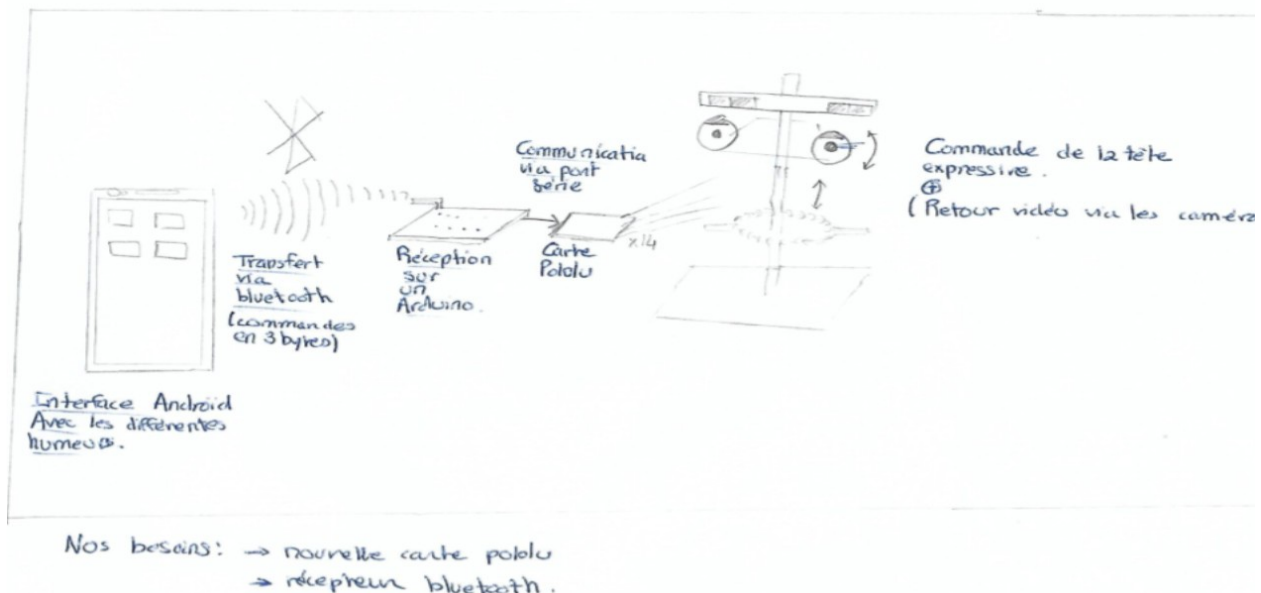 Interface Androïd
Avec les différentes
humeurs.
Transfert
via
bluetooth
(commandes
en 3 bytes)
Réception
sur
un
Arduino.
Communicatio
via port
série
Carte
Pololu
x14
Commande de la tête
expressive.
⊕
(Retour vidéo via les caméra
Nos besoins: → nouvelle carte pololu
→ récepteur bluetooth.